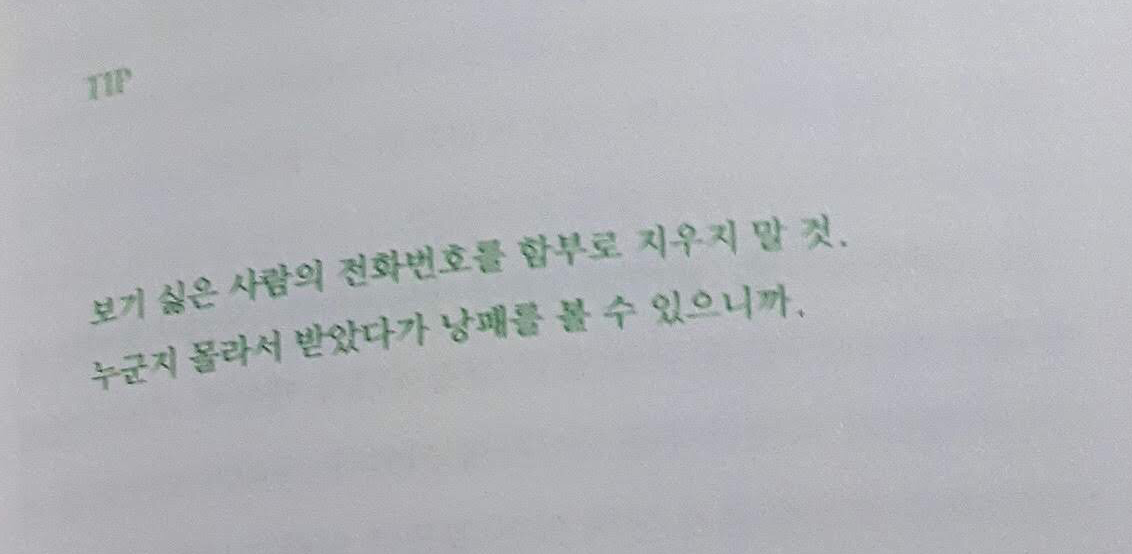 TIP
보기 싫은 사람의 전화번호를 함부로 지우지 말 것.
누군지 몰라서 받았다가 낭패를 볼 수 있으니까.